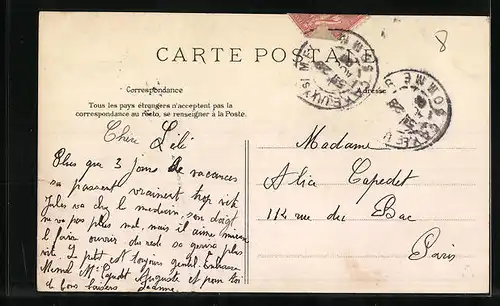 8
CARTE POSTALE
Correspondance
Adresse
Tous les pays étrangers n'acceptent pas la
correspondance au recto, se renseigner à la Poste.
Chère Lili
Plus que 3 jours de vacances
sa passent vraiment trop vite
Jules va chez le medecin, son doigt
ne va pas plus mal, mais il aime mieux
le faire ouvrir du reste sa guérira plus
vite. Y petit est toujours gentil. Embrasse
Auguste et pour toi
de bons baisers Jeanne
Madame
Alia Capedet
112 rue du Bac
Paris
CAYEUX SOMME